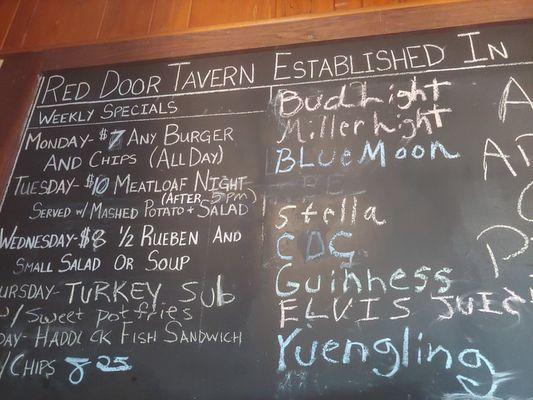 RED DOOR TAVERN ESTABLISHED IN
WEEKLY SPECIALS
MONDAY- $7 ANY BURGER
AND CHIPS (ALL DAY)
TUESDAY- $10 MEATLOAF NIGHT
(AFTER 5PM)
SERVED W/ MASHED POTATO + SALAD
WEDNESDAY- $8 1/2 RUEBEN AND
SMALL SALAD OR SOUP
URSDAY- TURKEY SUb
W/ SWEET pot fries
DAY- HADDOCK FISH SANDWICH
/ CHIPS 8 25
Bud Light
Miller Light
BLUe MooN
Stella
CDC
Guinness
ELVIS JUIC
Yuengling